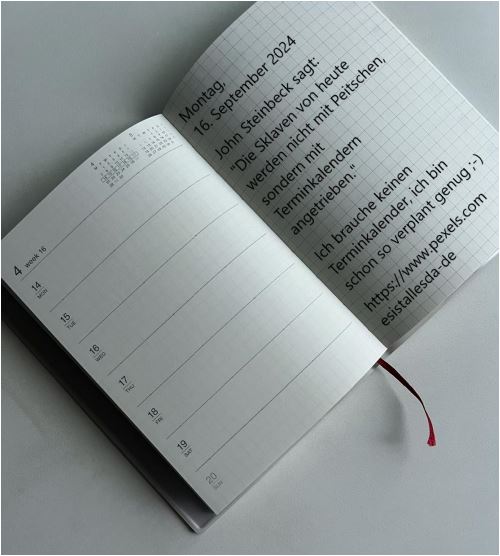 Montag,
16. September 2024
John Steinbeck sagt:
"Die Sklaven von heute
werden nicht mit Peitschen,
sondern mit
Terminkalendern
angetrieben."
Ich brauche keinen
Terminkalender, ich bin
schon so verplant genug ;-)
https://www.pexels.com
esistallesda-de
4 week 16
14
MON
15
TUE
16
WED
17
THU
18
FRI
19
SAT
20
SUN